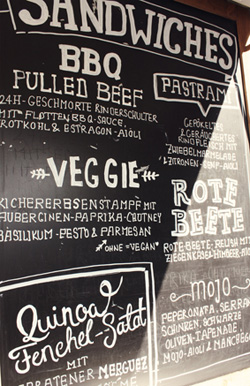 SANDWICHES
BBQ
PULLED BEEF
24H-GESCHMORTE RINDERSCHULTER
MIT FLOTTEN BBQ-SAUCE,
ROTKOHL & ESTRAGON-AIOLI
PASTRAMI
GEPÖKELTES
& GERÄUCHERTES
RINDFLEISCH MIT
ZWIEBELMARMELADE
& ZITRONEN-SENF-AIOLI
VEGGIE
KICHERERBSENSTAMPF MIT
AUBERGINEN-PAPRIKA-CHUTNEY
BASILIKUM-PESTO & PARMESAN
*OHNE = "VEGAN"
ROTE
BEETE
ROTE BEETE-RELISH MIT
ZIEGENKÄSE & HIMBEER-AIOLI
Quinoa &
Fenchel-Salat
MIT
GEBRATENER MERGUEZ
MOJO
PEPERONATA, SERRANO
SCHINKEN, SCHWARZE
OLIVEN-TAPENADE
MOJO-AIOLI & MANCHEGO